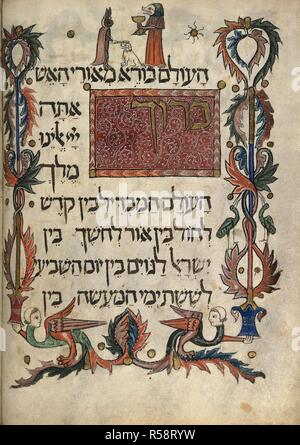 העולם בורא מאורי האש
ברוך
אתה
יי אלהינו
מלך
העולם המבדיל בין קדש
לחול בין אור לחשך בין
ישראל לגוים בין יום השביעי
לששת ימי המעשה בין